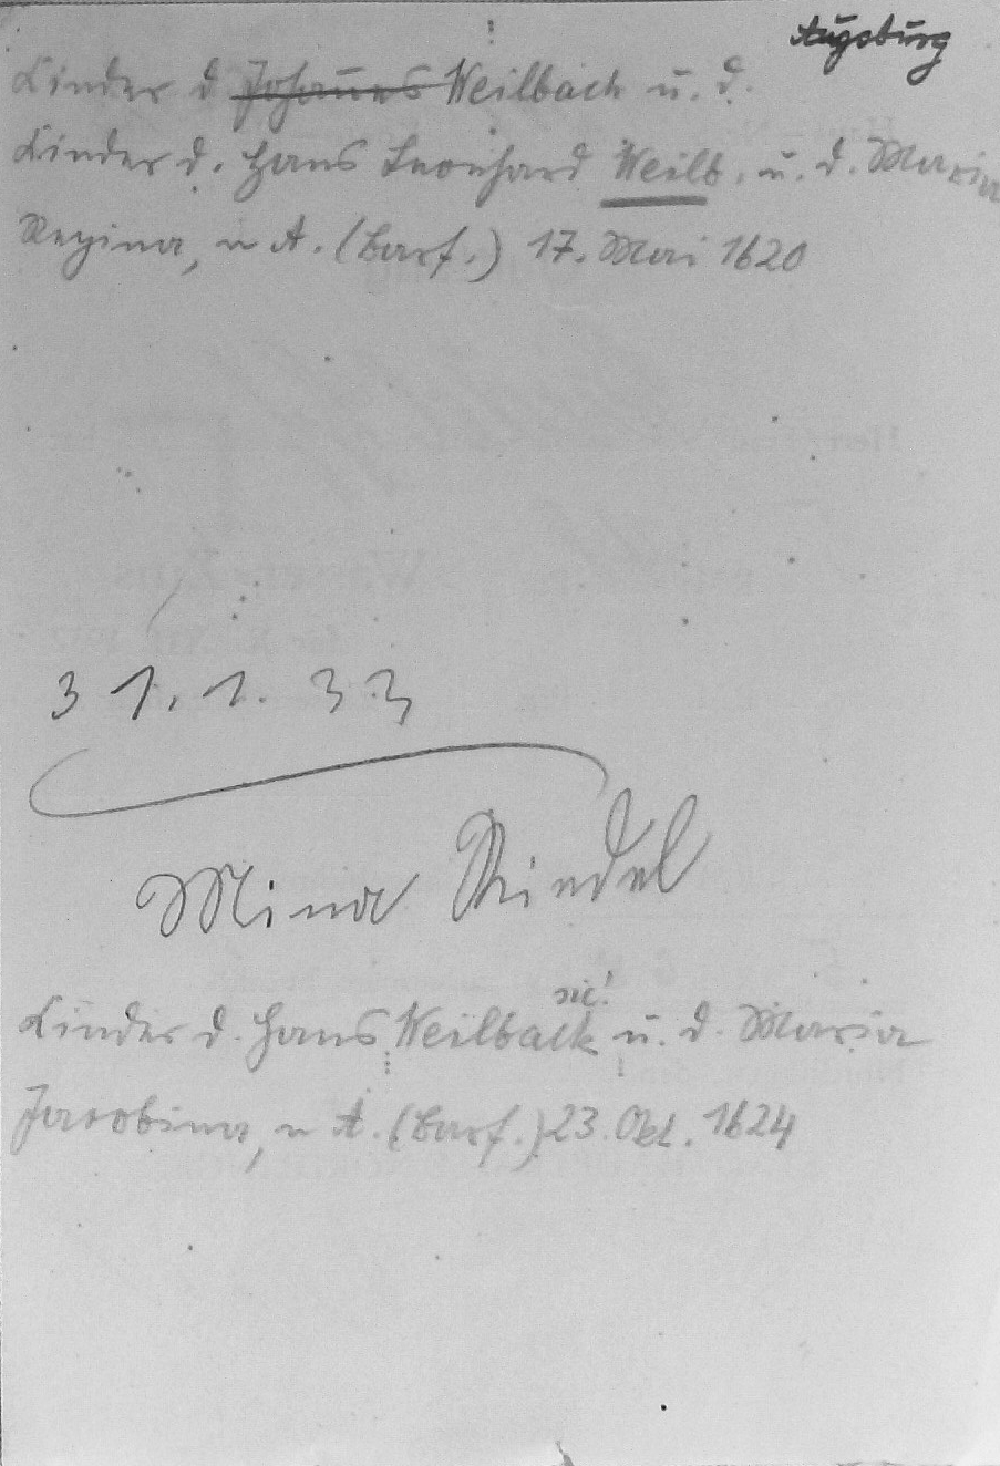 Augsburg
Kinder d Johannes Weilbach u. d.
Kinder d. Hans Leonhard Weilb. u. d. Maria
Regina, in A. (Barf.) 17. Mai 1620
31.1.33
Mina Riedel
sic!
Kinder d. Hans Weilback u. d. Maria
Jacobina, in A. (Barf.) 23. Okt. 1624